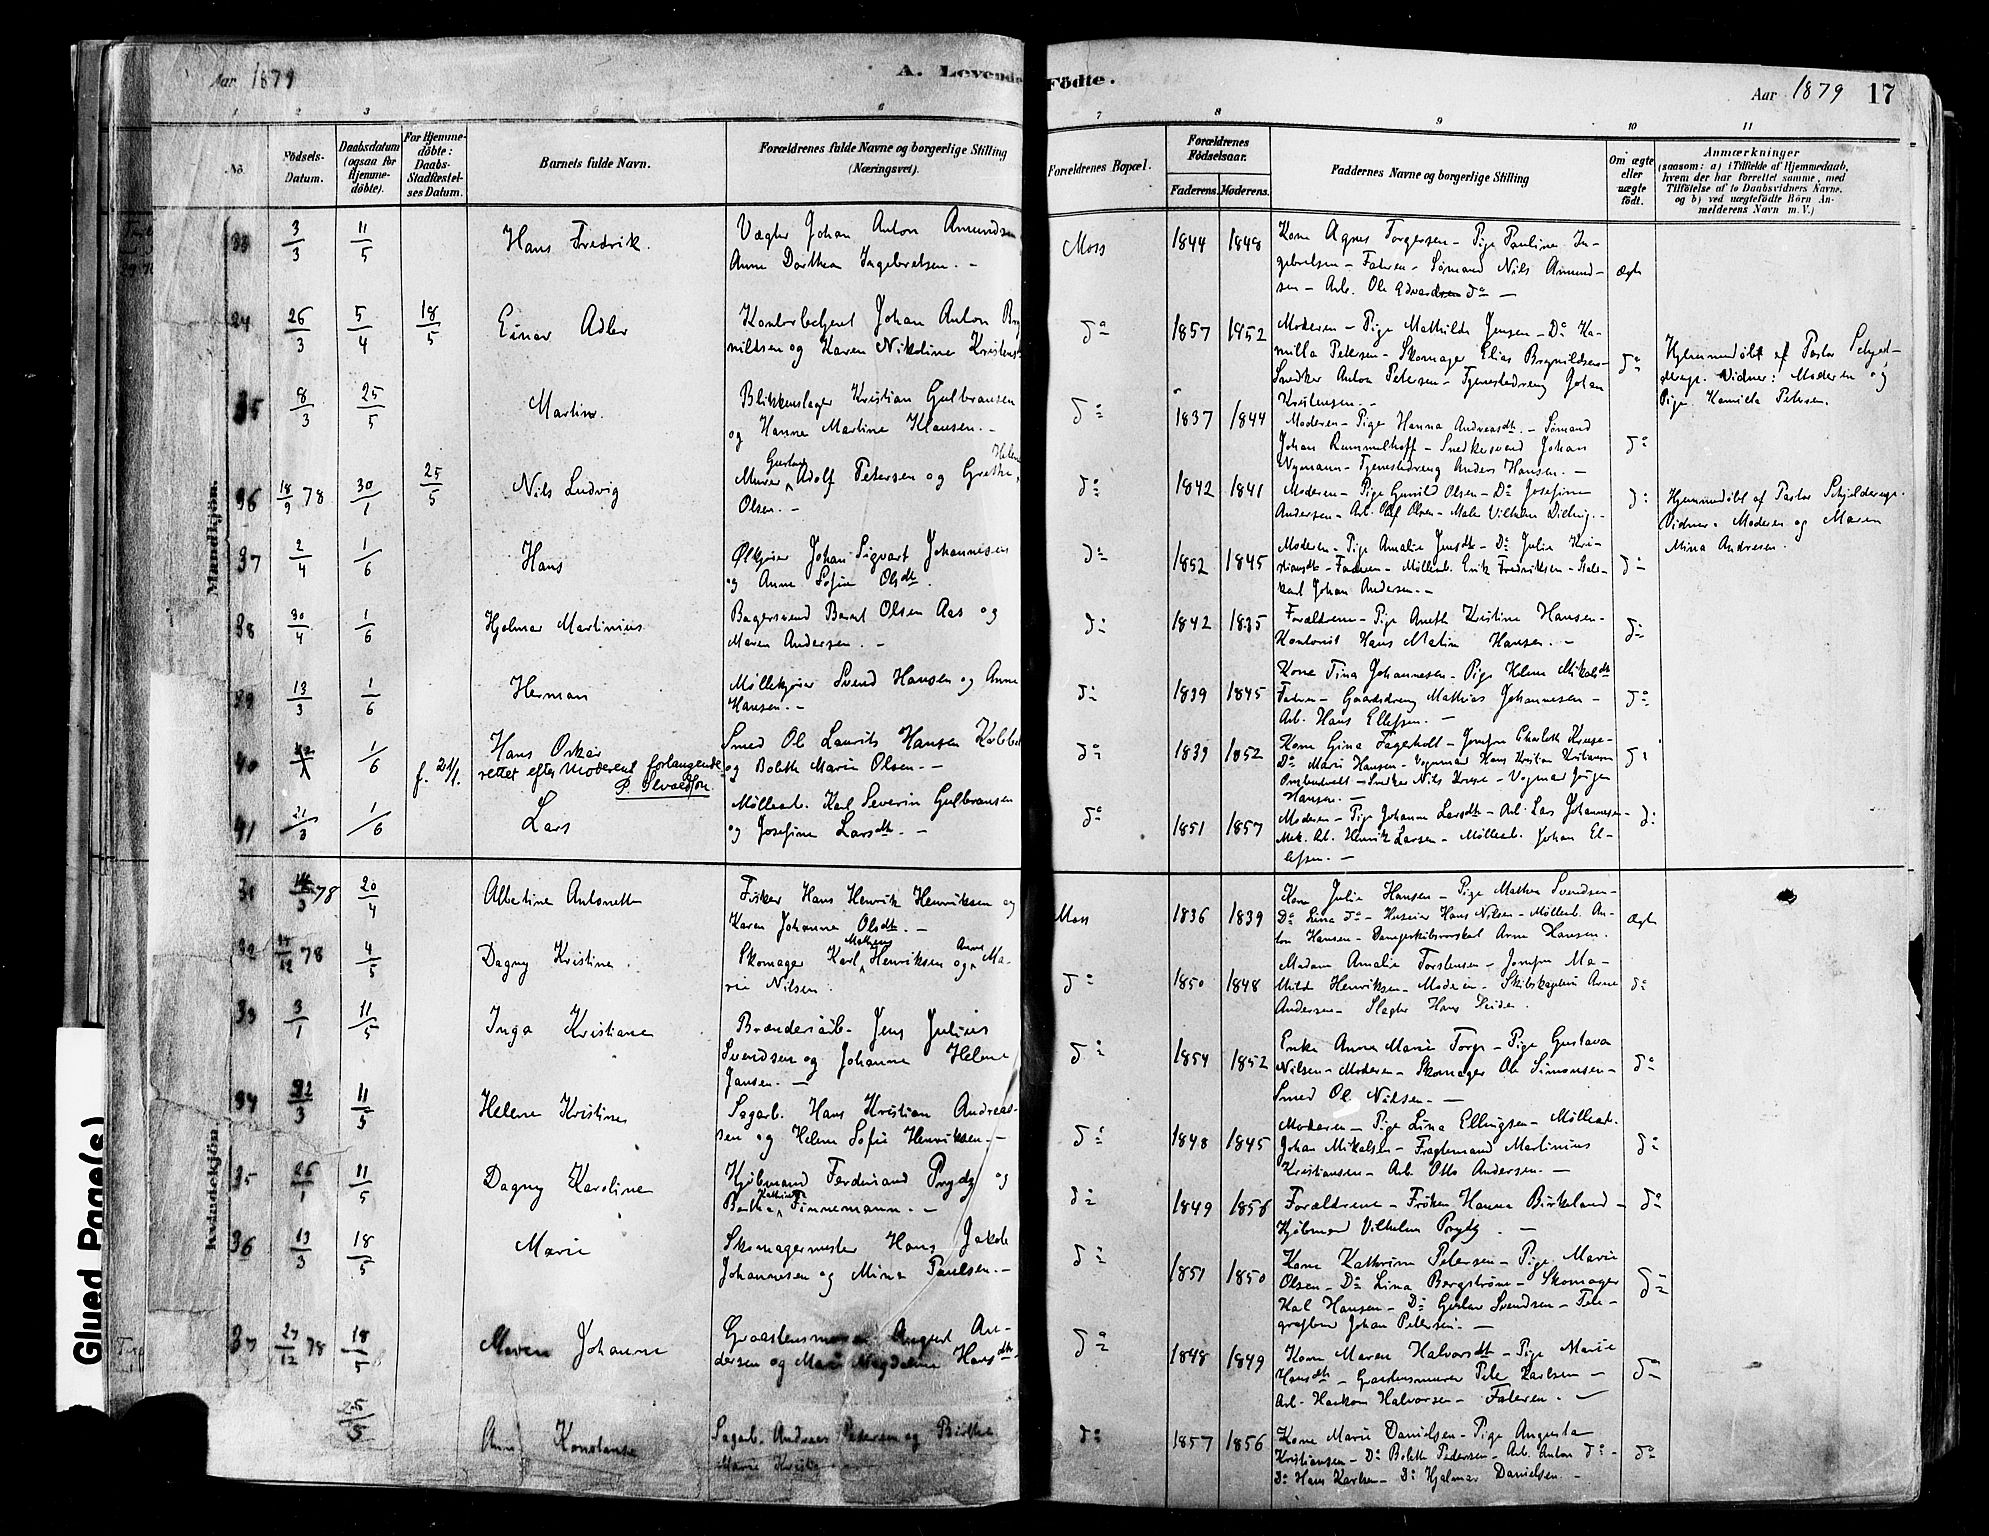 Aar 1879
A. Levende Födte.
Aar 1879 17
1 2 3 4 5 6 7 8 9 10 11
No.
Födsels-Datum.
Daabsdatum (ogsaa for Hjemmedöbte).
For Hjemmedöbte: Daabs-Stadfæstelses Datum.
Barnets fulde Navn.
Forældrenes fulde Navne og borgerlige Stilling (Næringsvei).
Forældrenes Bopæl.
Forældrenes Födselsaar.
Faderens. Moderens.
Faddernes Navne og borgerlige Stilling
Om ægte eller uægte födt.
Anmærkninger
(saasom: a) i Tilfælde af Hjemmedaab, hvem der har forrettet samme, med Tilföielse af to Daabsvidners Navne. og b) ved uægtefödte Börn Anmelderens Navn m. V.)
Mandkjön.
33 3/3 11/5 Hans Fredrik. Vægter Johan Anton Amundsen
Anne Dorthea Ingebretsen. -
Moss 1844 1848 Kone Agnes Torgersen - Pige Pauline In-
gebretsen - Faderen - Sømand Nils Amund-
sen - Arb. Ole Edvardsen do -
ægte
34 26/3 5/4 18/5 Einar Adler Kontorbetjent Johan Anton Bry
nildsen og Karen Nikoline Kristens
do 1857 1852 Moderen - Pige Mathilde Jensen - Do Ka-
milla Petersen - Skomager Elias Brynildsen -
Snedker Anton Petersen - Tjenestedreng Johan
Kristensen. -
do
Hjemmedøbt af Pastor Schjel-
derup. Vidner: Moderen og
Pige Kamilla Petersen.
35 8/3 25/5 Martin. Blikkenslager Kristian Gulbransen
og Hanne Martine Klausen. -
do 1837 1844 Moderen - Pige Hanna Andreasdt. - Sømand
Johan Rummelhoff - Snedkersvend Johan
Nymann - Tjenestedreng Anders Hansen. -
do
36 18/9 78 30/1 25/5 Nils Ludvig Murer Gustav Adolf Petersen og Grethe Helene
Olsen. -
do 1842 1841 Moderen - Pige Gunild Olsen - Do Josefine
Andersen - Arb. Olaf Olsen - Maler Vilhelm
do
Hjemmedøbt af Pastor Schjelderup.
Vidner: Moderen og Maren
Mina Andresen.
37 2/4 1/6 Hans Ølkjører Johan Sigvart Johannesen
og Anne Sofie Olsdt.
do 1852 1845 Moderen - Pige Amalie Jensdt - Do Julie Kri-
stiansdt - Faderen - Møllearb. Erik Fredriksen - Stal-
karl Johan Andersen. -
do
38 30/4 1/6 Hjalmar Martinius Bagersvend Bernt Olsen Aas og
Maren Andersen. -
do 1842 1835 Forældrene - Pige Aneth Kristine Hansen -
Kontorist Hans Martin Hansen. -
do
39 13/3 1/6 Herman Møllekjører Svend Hansen og Anne
Hansen. -
do 1839 1845 Kone Tina Johannesen - Pige Helene Mikalsdt
Faderen - Gaardsdreng Mathias Johannesen -
Arb. Hans Ellefsen. -
do
40 1/6 Hans Oskar
rettet efter Moderens forlangende
f. 21/1. P. Thvaldson.
Smed Ol Laurits Hansen
og Bolethe Marie Olsen. -
do 1839 1852 Kone Gina Fagerholt - Jomfru Charlothe Kruse -
Do Marie Hansen - Vognmand Hans Kristian Kristiansen
- Snedker Nils Kruse - Vognmand Jørgen
Hansen. -
do
41 21/3 1/6 Lars Møllearb. Karl Severin Gulbransen
og Josefine Larsdt. -
do 1851 1857 Moderen - Pige Johanne Larsdt - Arb. Lars Johannesen -
Mek. Arb. Henrik Larsen - Møllearb. Johan El-
lefsen. -
do
Kvindekjön
31 78 20/4 Albertine Antonette Fisker Hans Henrik Henriksen og
Karen Johanne Olsdt. -
Moss 1836 1839 Kone Julie Hansen - Pige Mathea Svendsen -
Do Lina do - Huseier Hans Nilsen - Møllearb. An-
ton Hansen - Arne Hansen.
ægte
32 78 4/5 Dagny Kristine. Skomager Karl Mathias Henriksen og Anne Ma-
rie Nilsen.
do 1850 1848 Madam Amalie Torstensen - Jomfru Ma-
thilde Henriksen - Moderen - Skibskaptein Arne
Andersen - Slagter Hans
do
33 3/1 11/5 Inga Kristiane Brænderiarb. Jens Julius
Svendsen og Johanne Helene
Jansen. -
do 1854 1852 Enke Anne Marie Torp - Pige Gustava
Nilsen - Moderen - Skomager Ole Simonsen -
Smed Ol Nilsen. -
do
34 22/3 11/5 Helene Kristine Sagarb. Hans Kristian Andreas-
sen og Helene Sofie Henriksen. -
do 1848 1845 Moderen - Pige Lina Ellingsen - Møllearb.
Johan Mikalsen - Fragtemand Martinius
Kristiansen - Arb. Otto Andersen. -
do
35 26/1 11/5 Dagny Karoline Kjøbmand Ferdinand Prydz og
Bertha Kathrine Finnemann. -
do 1849 1856 Forældrene - Frøken Hanna Birkeland -
Kjøbmand Vilhelm Prydz. -
do
36 13/3 18/5 Marie Skomagermester Hans Jakob
Johannesen og Mina Paulsen. -
do 1851 1850 Kone Kathrine Petersen - Pige Marie
Olsen - Do Lina Bergstrøm - Skomager
Karl Hansen - Do Gustav Svendsen - Tele-
grafbud Johan Petersen. -
do
37 27/12 78 18/5 Maren Johanne Graastensmurer August An-
dersen og Marie Magdalene Hansdt. -
do 1848 1849 Kone Maren Halvorsdt - Pige Marie
Hansdt - Graastensmurer Peter Karlsen -
Arb. Haakon Halvorsen - Faderen. -
do
25/5 Anne Konstanse Sagarb. Andreas Pedersen og Birthe
Marie
do 1857 1856 Kone Marie Danielsen - Pige Augusta
Kristiansen - Do Bolethe Pedersen - Arb. Anton do -
Do Hans Karlsen - Do Hjalmar Danielsen. -
do
Glued Page(s)